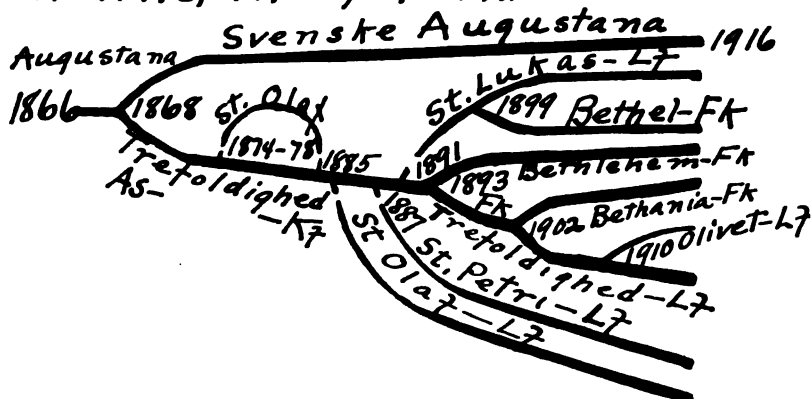 Svenske Augustana
1916
Augustana
1866
1868
St. Olaf
1874-78
1885
Trefoldighed
AS-
-K7
St. Lukas-L7
1899 Bethel-Fk
1891
1893 Bethlehem-Fk
Fk
1902 Bethania-Fk
1910 Olivet-L7
Trefoldighed-L7
1887
St. Petri-L7
St Olaf-L7